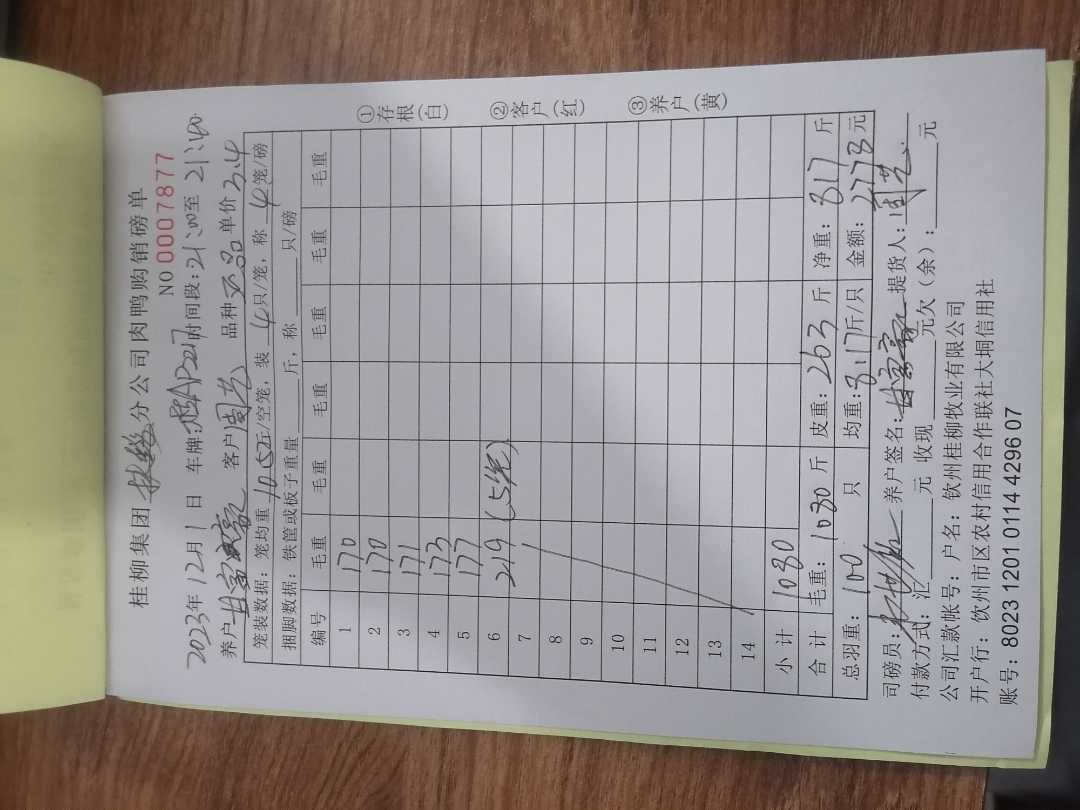 桂柳集团 分公司肉鸭购销磅单
NO 0007877
2023年12月1日 车牌: 时间段:21:00至21:40
养户 甘富豪 客户 周艺 品种 正品 单价 3.4
笼装数据:笼均重10.5斤/空笼,装 4只/笼,称 4笼/磅
捆脚数据:铁筐或板子重量 斤,称 只/磅
编号 毛重 毛重 毛重 毛重 毛重 毛重
1 170
2 170
3 171
4 173
5 177
6 219 (5笼)
7
8
9
10
11
12
13
14
小计 1080
合计 毛重:1080斤 皮重:263斤 净重:817斤
总羽重:100 只 均重:8.17斤/只 金额:2778元
司磅员: 养户签名:甘富豪 提货人:周艺
付款方式:汇 元 收现 元欠(余): 元
公司汇款帐号:户名:钦州桂柳牧业有限公司
开户行:钦州市区农村信用合作联社大垌信用社
账号:8023 1201 0114 4296 07
①存根(白) ②客户(红) ③养户(黄)